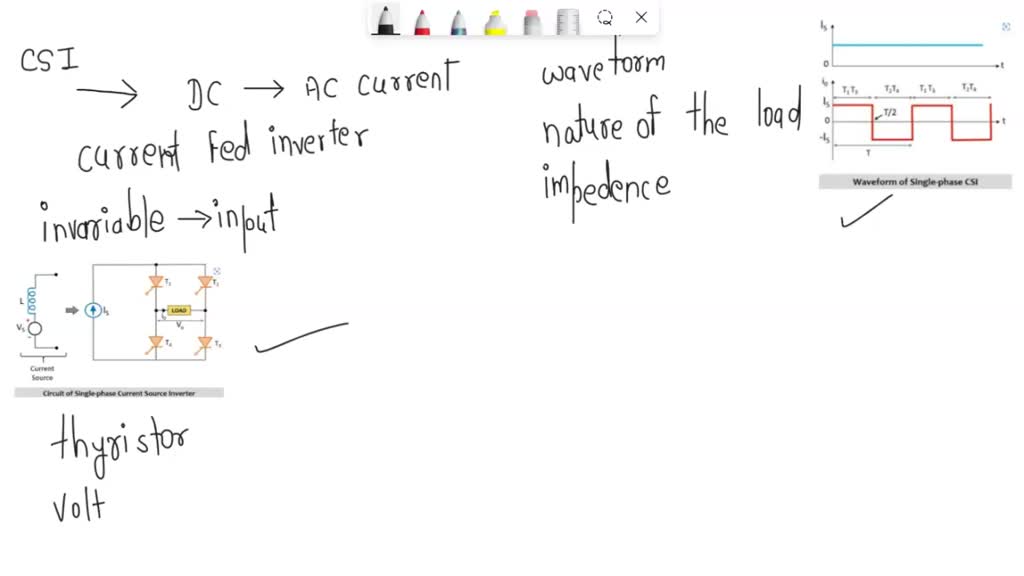 CSI
DC → AC current
current Fed inverter
invariable → input
L
Vs
+
-
Current
Source
Is
T1
T3
LOAD
io
Vo
T4
Circuit of Single-phase Current Source Inverter
thyristor
volt
waveform
nature of the load
impedence
Is
0
t
io
T1 T3
T2T4
T1 T3
T2T4
Is
0
-Is
T/2
t
T
Waveform of Single-phase CSI